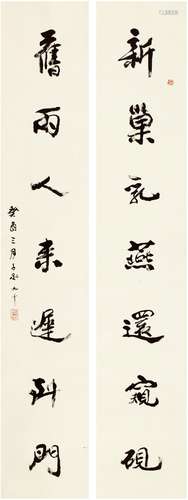 新巢乳燕還窺硯
舊雨人來遲門
癸酉三月子九十